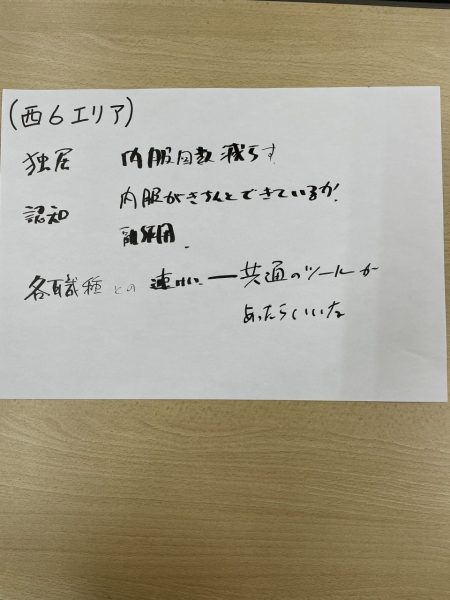 (西6エリア)
独居 内服回数減らす
認知 内服がきちんとできているか?
副作用
各職種との連けい ー 共通のツールが
あったらいいな